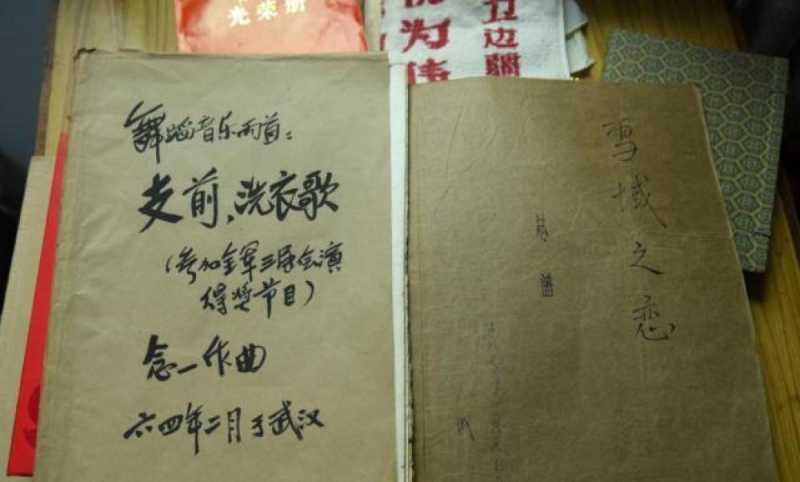 光荣册
为伟
卫边疆
舞蹈音乐两首：
支前、洗衣歌
（参加全军三届会演
得奖节目）
念一作曲
六四年二月于武汉
雪域之恋
总谱